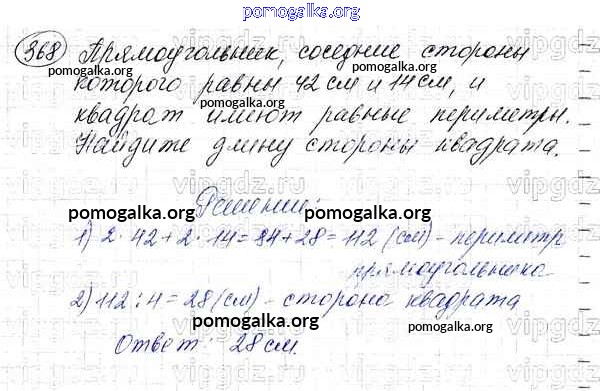 pomogalka.org
368 Прямоугольник, соседние стороны
которого равны 42 см и 14 см, и
pomogalka.org pomogalka.org
квадрат имеют равные периметры.
Найдите длину стороны квадрата.
vipgdz.ru vipgdz.ru vipgdz.ru
Решение:
pomogalka.org pomogalka.org
1) 2 · 42 + 2 · 14 = 84 + 28 = 112 (см) - периметр
прямоугольника
2) 112 : 4 = 28 (см) - сторона квадрата
pomogalka.org pomogalka.org
Ответ: 28 см.
pomogalka.org